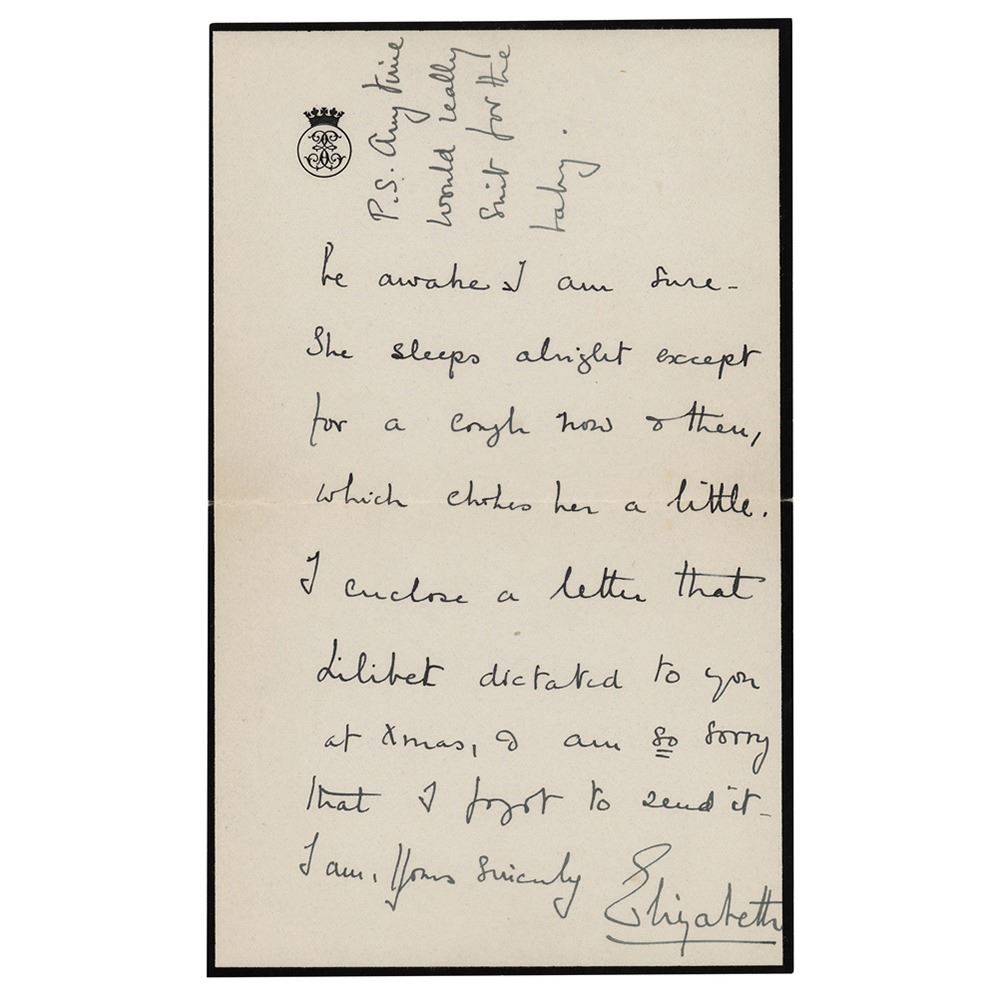 P.S. Any time
would really
suit for the
baby.
be awake I am sure -
She sleeps alright except
for a cough now & then,
which chokes her a little.
I enclose a letter that
Lilibet dictated to you
at Xmas, & am so sorry
that I forgot to send it -
I am, Yours Sincerely
Elizabeth